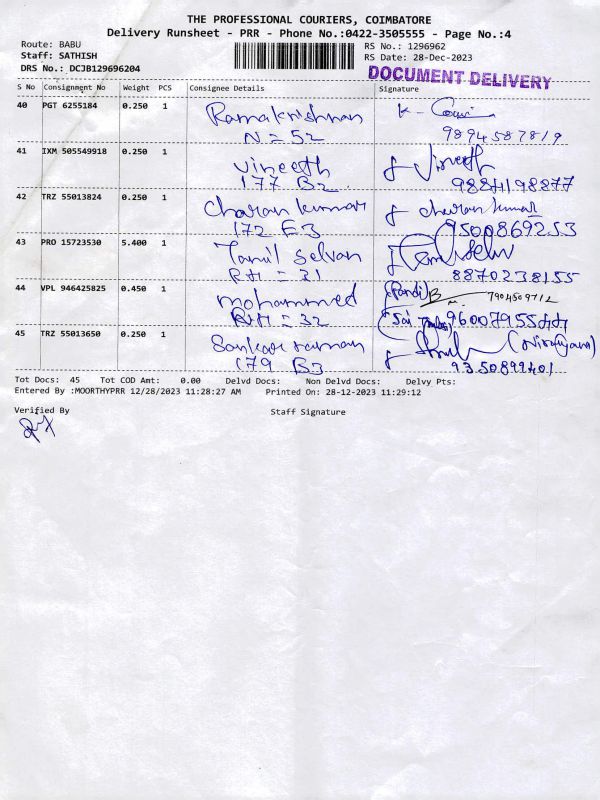 THE PROFESSIONAL COURIERS, COIMBATORE
Delivery Runsheet - PRR - Phone No.:0422-3505555 - Page No.:4
Route: BABU
RS No.: 1296962
Staff: SATHISH
RS Date: 28-Dec-2023
DRS No.: DCJB129696204
DOCUMENT DELIVERY
S No Consignment No Weight PCS Consignee Details Signature
40 PGT 6255184 0.250 1 Ramakrishnan
N = 52 9894587819
41 IXM 505549918 0.250 1 Vineeth Vineeth
177 B2 9884198877
42 TRZ 55013824 0.250 1 Charan kumar charan kumar
172 E3 9500869253
43 PRO 15723530 5.400 1 Tamil Selvan
RH = 31 8870238155
44 VPL 946425825 0.450 1 mohammed (Pandi) 7904509712
RH = 32 (Sai
45 TRZ 55013650 0.250 1 Sankar raman
179 B3 9350899401
Tot Docs: 45 Tot COD Amt: 0.00 Delvd Docs: Non Delvd Docs: Delvy Pts:
Entered By :MOORTHYPRR 12/28/2023 11:28:27 AM Printed On: 28-12-2023 11:29:12
Verified By Staff Signature